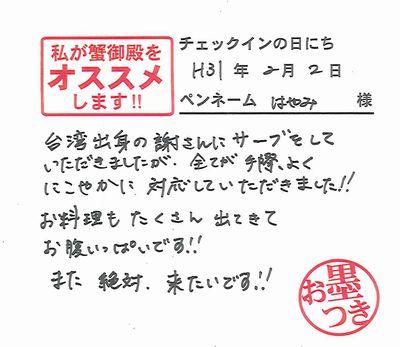 私が蟹御殿を
オススメ
します!!
チェックインの日にち
H31年 2月 2日
ペンネーム はやみ 様
台湾出身の謝さんにサーブをして
いただきましたが、全てが手際、よく
にこやかに 対応していただきました!!
お料理も たくさん 出てきて
お腹いっぱいです!!
また 絶対、来たいです!!
お墨つき